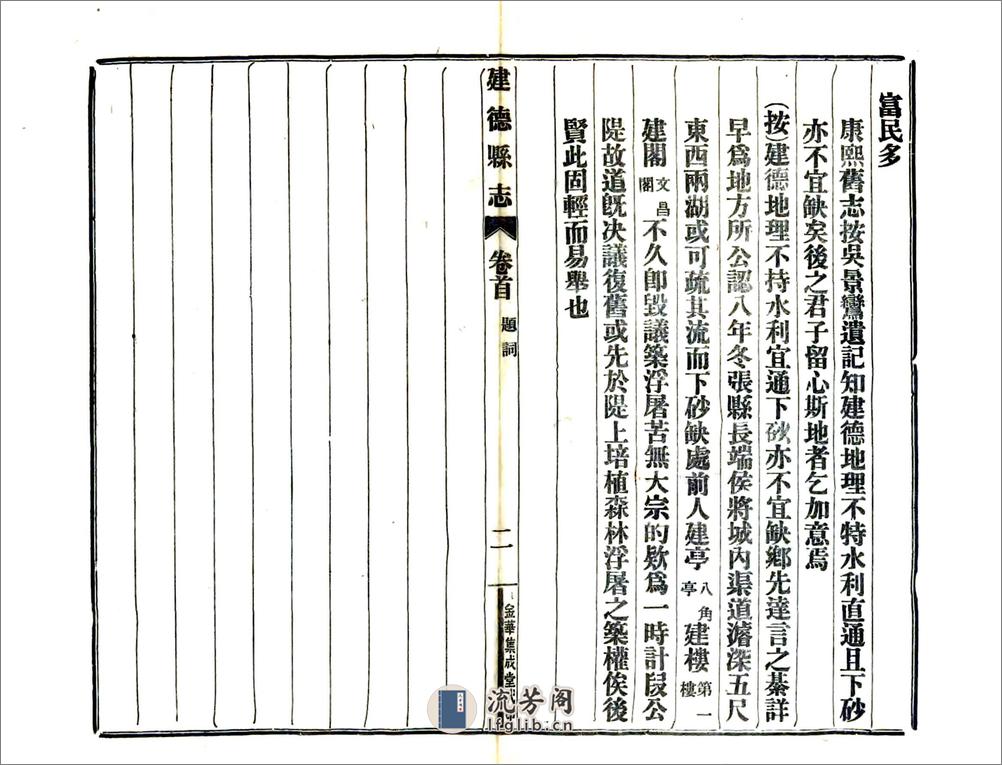 富民多
康熙舊志按吳景鸞遺記知建德地理不特水利直通且下砂
亦不宜缺矣後之君子留心斯地者乞加意焉
(按)建德地理不持水利宜通下砂亦不宜缺鄉先達言之綦詳
早爲地方所公認八年冬張縣長端侯將城內渠道濬深五尺
東西兩湖或可疏其流而下砂缺處前人建亭八角亭建樓第一樓
建閣文昌閣不久卽毀議築浮屠苦無大宗的欵爲一時計段公
隄故道旣决議復舊或先於隄上培植森林浮屠之築權俟後
賢此固輕而易舉也
建德縣志 卷首 題詞 二 金華集成堂
流芳阁
lfglib.cn